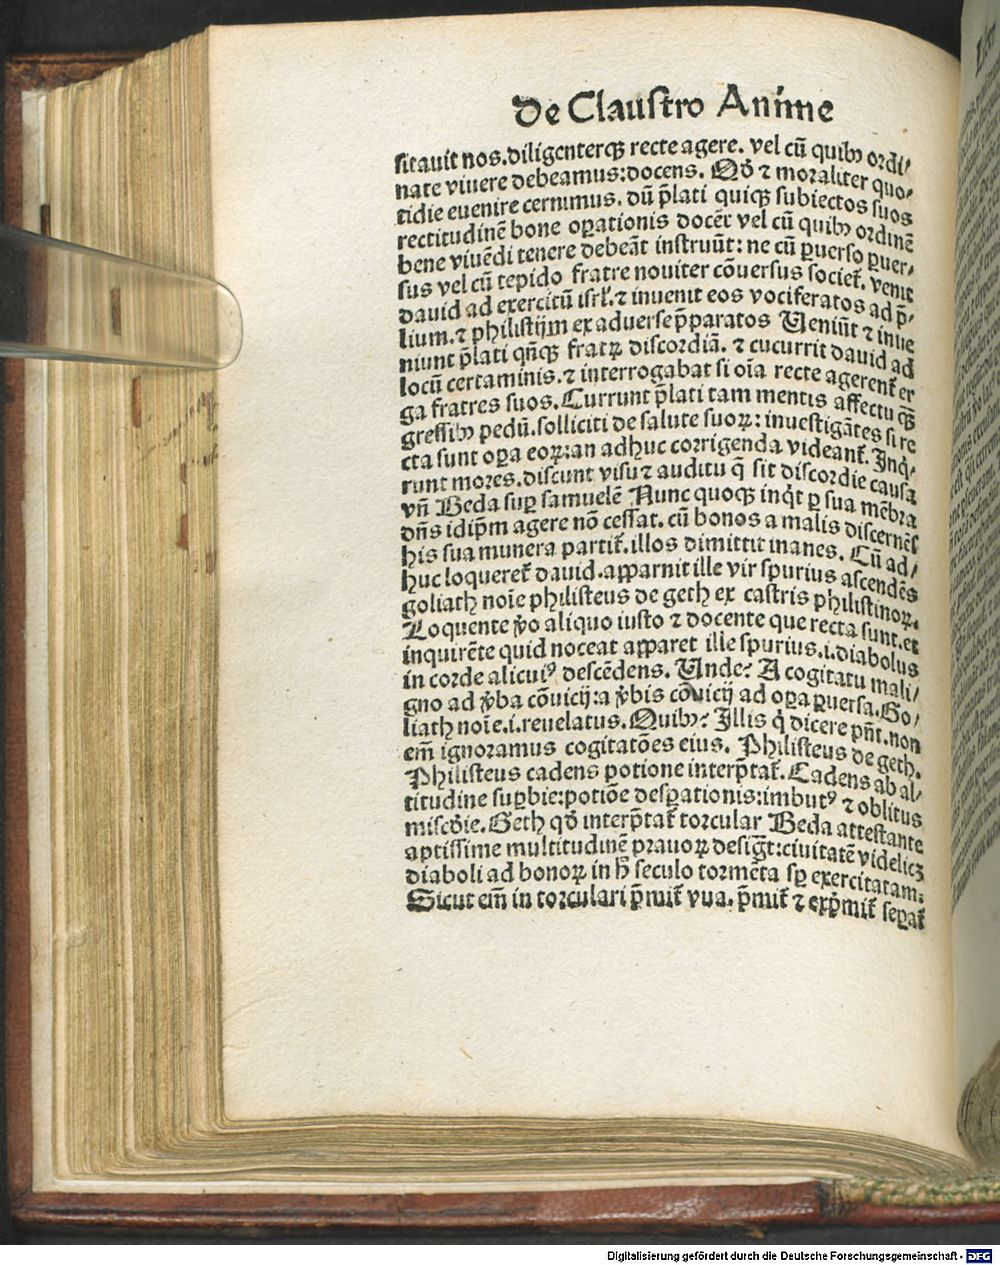 De Clauſtro Anime
ſitauit nos.diligenterqꝫ recte agere. vel cū quibꝰ ordi⸗
nate viuere debeamus:docens. Qḋ ⁊ moraliter quo⸗
tidie euenire cernimus. dū p̄lati quiqꝫ ſubiectos ſuos
rectitudinē bone oꝑationis docēt vel cū quibꝰ ordinē
bene viuēdi tenere debeāt inſtruūt: ne cū ꝑuerſo ꝑuer⸗
ſus vel cū tepido fratre nouiter cōuerſus ſociet᷑. Venit
dauid ad exercitū iſrl᷑.⁊ inuenit eos vociferatos ad p̄⸗
lium.⁊ philiſtijm ex aduerſe p̄paratos Ueniūt ⁊ inue
niunt p̄lati qn̄qꝫ fratꝝ diſcordiā. ⁊ cucurrit dauid ad
locū certaminis.⁊ interrogabat ſi oīa recte agerent᷑ er
ga fratres ſuos. Currunt p̄lati tam mentis affectu qꝫ̄
greſſibꝰ pedū.ſolliciti de ſalute ſuoꝝ: inueſtigātes ſi re
cta ſunt oꝑa eoꝝ:an adhuc corrigenda videant᷑. Inq⸗
runt mores.diſcunt viſu ⁊ auditu q̄ ſit diſcordie cauſa
vn̄ Beda ſuꝑ ſamuelē Nunc quoqꝫ inq̇t ꝑ ſua mēbra
dn̄s idip̄m agere nō ceſſat. cū bonos a malis diſcernēs
his ſua munera partit᷑.illos dimittit inanes. Cū ad⸗
huc loqueret᷑ dauid.apparnit ille vir ſpurius aſcendēs
goliath noīe philiſteus de geth ex caſtris philiſtinoꝝ.
Loquente ꝟo aliquo iuſto ⁊ docente que recta ſunt.et
inquirēte quid noceat apparet ille ſpurius.i.diabolus
in corde alicuiꝰ deſcēdens. Unde? A cogitatu mali⸗
gno ad ꝟba cōuicij:a ꝟbis cōuicij ad oꝑa ꝑuerſa.Go⸗
liath noīe.i.reuelatus. Quibꝰ? Illis q̇ dicere pn̄t.non
em̄ ignoramus cogitatōes eius. Philiſteus de geth.
Philiſteus cadens potione interp̄tat᷑. Cadens ab al⸗
titudine ſuꝑbie:potiōe deſꝑationis:imbutꝰ ⁊ oblitus
miſcd̄ie. Geth qḋ interp̄tat᷑ torcular Beda atteſtante
aptiſſime multitudinē prauoꝝ deſigt̄:ciuitatē videlicꝫ
diaboli ad bonoꝝ in h̄ ſeculo tormēta ſꝑ exercitatam:
Sicut em̄ in torculari p̄mit᷑ vua. p̄mit᷑ ⁊ exp̄mit᷑ ſeꝑat᷑
Liber
Digitalisierung gefördert durch die Deutsche Forschungsgemeinschaft - DFG